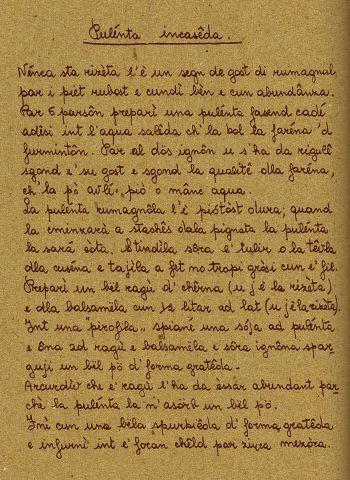 Pulénta incasêda.
Nénca sta rizèta l'è un segn de gost di rumagnul,
par i piët rubost e cundì bèn e cun abundânza.
Par 6 parsôn preparì una pulénta fasend cadé
adési int l'aqua salêda ch'la bol la faréna 'd
furmintôn. Par al dòs ignôn u s'ha da regulê
sgond e' su gost e sgond la qualitê dla faréna,
ch'la pò avlì piò o mânc aqua.
La pulénta rumagnôla l'è piötòst dura; quand
la cminzarà a stachês dala pignata la pulénta
la sarà còta. Stindìla sôra e' tulir o la têvla
dla cuséna e tajìla a fët no tropi gròsi cun e' fil.
Preparì un bël ragù d' chêrna (u j è la rizèta)
e dla balsamëla cun 1/2 litar ad lat (u j è la rizèta).
Int una "pirofila" spianê una sója ad pulénta
e óna ad ragù e balsamëla e sôra ignóna spar-
gujì un bël pô d' fôrma gratêda.
Arcurdêv che e' ragù l'ha da èssar abundant par-
chè la pulénta la n'asôrb un bël pô.
Fnì cun una bëla spurbiêda d' fôrma gratêda
e infurnì int e' fôran chêld par zirca mezóra.